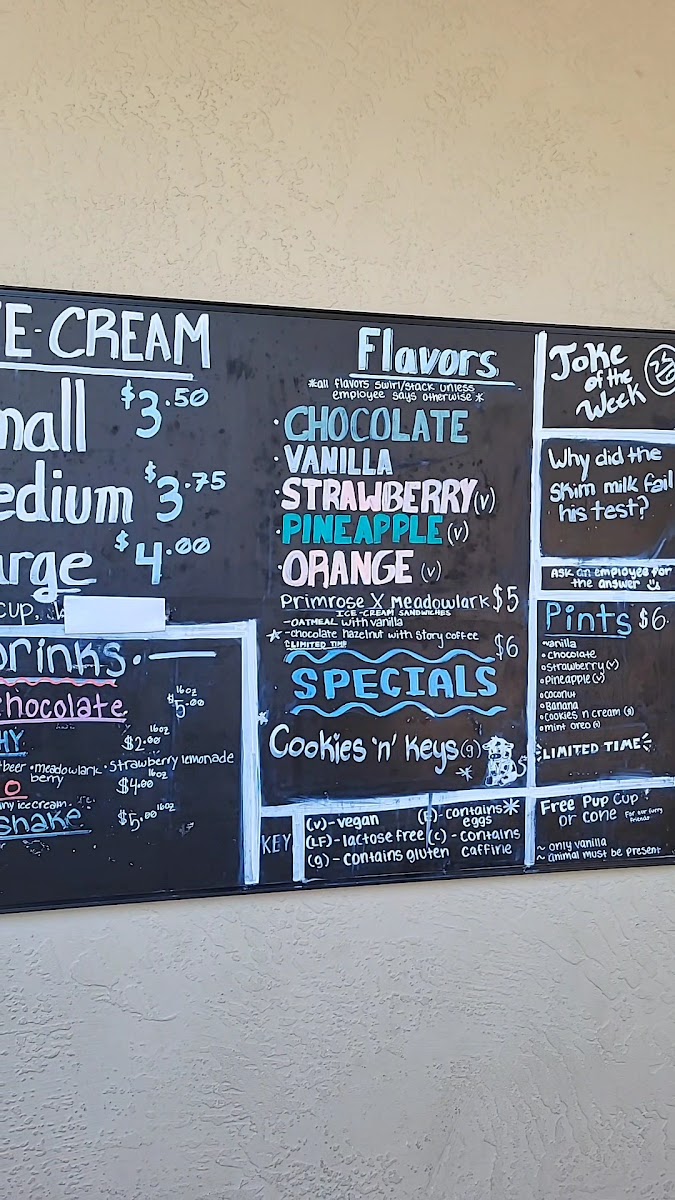 E-CREAM
mall $3.50
edium $3.75
arge $4.00
cup,
Drinks
chocolate 16oz $5.00
HY 16oz $2.00
beer • meadowlark berry • Strawberry lemonade
O 16oz $4.00
ny ice cream
shake 16oz $5.00
Flavors
*all flavors swirl/stack unless
employee says otherwise*
• CHOCOLATE
• VANILLA
• STRAWBERRY (v)
• PINEAPPLE (v)
• ORANGE (v)
Primrose X Meadowlark $5
ICE-CREAM SANDWICHES
- OATMEAL with vanilla
- chocolate hazelnut with Story coffee $6
LIMITED TIME
SPECIALS
Cookies 'n' Keys (g)
KEY
(v) - vegan
(LF) - lactose free
(g) - contains gluten
(E) - contains eggs
(c) - contains
caffirie
Joke
of the
Week
Why did the
skim milk fail
his test?
Ask an employee for
the answer
Pints $6
• vanilla
• chocolate
• Strawberry (v)
• Pineapple (v)
• coconut
• Banana
• Cookies n cream (g)
• mint oreo
LIMITED TIME
Free Pup Cup
or cone For our furry
friends
~ only vanilla
~ animal must be present